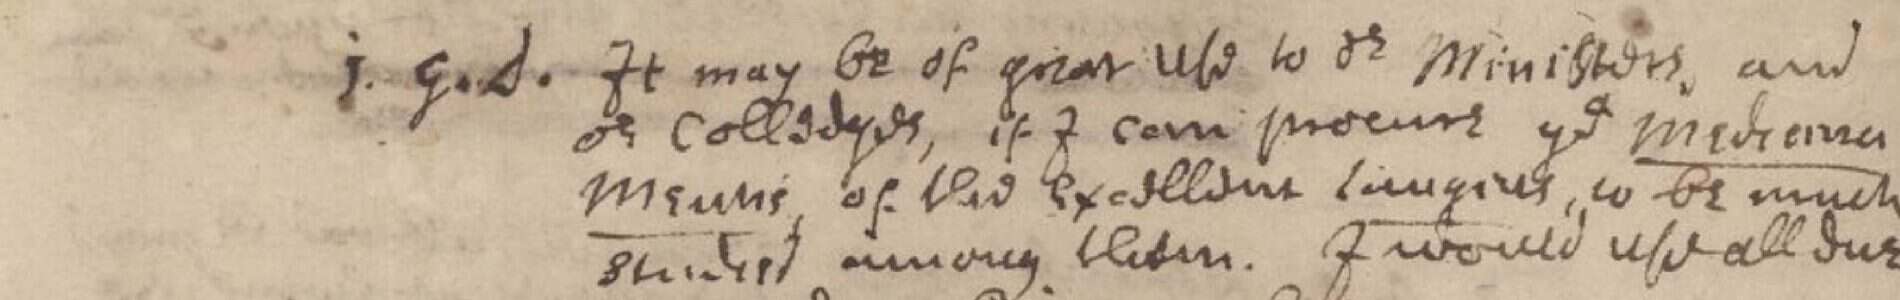 j. g. d. It may be of great Use to or Ministers, and
or Colledges, if I can procure ye Medicina
Mentis, of the Excellent Langius, to be much
studied among them. I would use all due